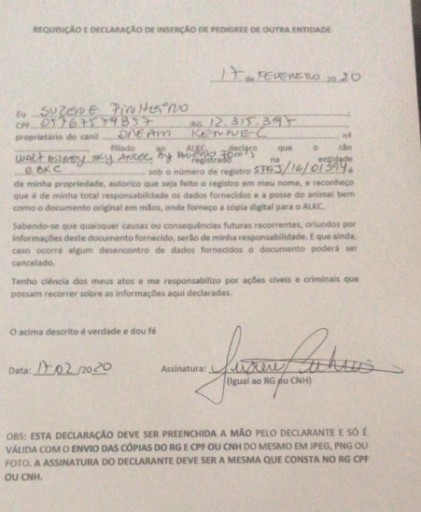 REQUISIÇÃO E DECLARAÇÃO DE INSERÇÃO DE PEDIGREE DE OUTRA ENTIDADE
17 de FEVEREIRO 2020
Eu SUZENE PINHEIRO
CPF RG 12.315.397
proprietário do canil DREAM KENNEL nº
filiado ao ALEC, declaro que o cão
WALT DISNEY SKY ANGEL BY registrado na entidade
sob o número de registro
de minha propriedade, autorizo que seja feito o registro em meu nome, e reconheço
que é de minha total responsabilidade os dados fornecidos e a posse do animal bem
como o documento original em mãos, onde forneço a cópia digital para o ALEC.
Sabendo-se que quaisquer causas ou consequências futuras recorrentes, oriundos por
informações deste documento fornecido, serão de minha responsabilidade. E que ainda,
caso ocorra algum desencontro de dados fornecidos o documento poderá ser
cancelado.
Tenho ciência dos meus atos e me responsabilizo por ações cíveis e criminais que
possam recorrer sobre as informações aqui declaradas.
O acima descrito é verdade e dou fé
Data: 17/02/2020 Assinatura:
(Igual ao RG ou CNH)
OBS: ESTA DECLARAÇÃO DEVE SER PREENCHIDA A MÃO PELO DECLARANTE E SÓ É
VÁLIDA COM O ENVIO DAS CÓPIAS DO RG E CPF OU CNH DO MESMO EM JPEG, PNG OU
FOTO. A ASSINATURA DO DECLARANTE DEVE SER A MESMA QUE CONSTA NO RG CPF
OU CNH.